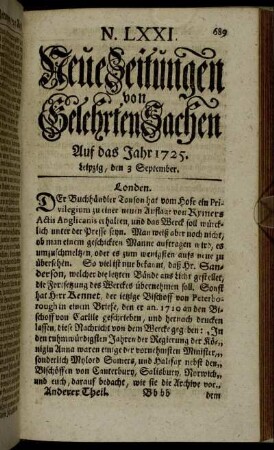 N. LXXI.
689
Neue Zeitungen
von
Gelehrten Sachen
Auf das Jahr 1725.
Leipzig, den 3 September.
Londen.
DEr Buchhändler Tonson hat vom Hofe ein Pri-
vilegium zu einer neuen Auflage von Rymers
Actis Anglicanis erhalten, und das Werck soll würck-
lich unter der Presse seyn. Man weiß aber noch nicht,
ob man einem geschickten Manne auftragen wird, es
umzuschmeltzen, oder es zum wenigsten aufs neue zu
übersehen. So viel ist nur bekannt, daß Hr. San-
derson, welcher die letzten Bände ans Licht gestellet,
die Fortsetzung des Werckes übernehmen soll. Sonst
hat Herr Kennet, der jetzige Bischoff von Peterbo-
rough in einem Briefe, den er an. 1710 an den Bi-
schoff von Carlile geschrieben, und hernach drucken
lassen, diese Nachricht von dem Wercke gegeben: „In
den ruhmwürdigsten Jahren der Regierung der Kö-„
nigin Anna waren einige der vornehmsten Minister,„
sonderlich Mylord Somers, und Halifax nebst den„
Bischöffen von Canterbury, Salisbury, Norwich„
und euch, darauf bedacht, wie sie die Archive vor„
Anderer Theil. Bbbb dem